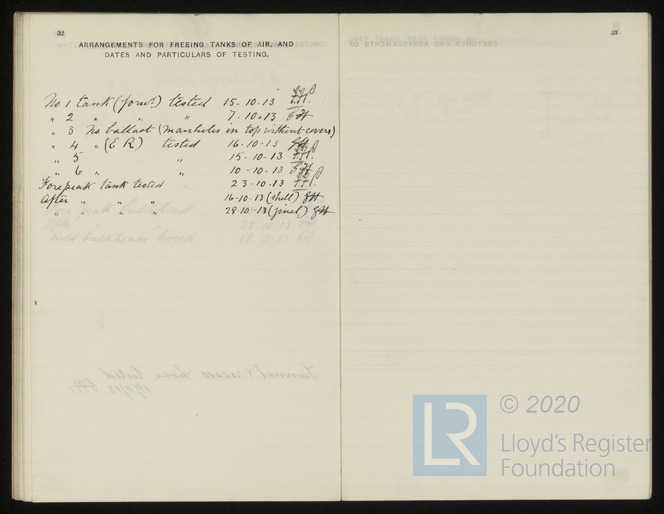 52
ARRANGEMENTS FOR FREEING TANKS OF AIR, AND
DATES AND PARTICULARS OF TESTING.
No 1 tank (forwd) tested 15.10.13
" 2 " " " 7.10.13
" 3 No ballast (manholes in top without covers)
" 4 " (E R) tested 16.10.13
" 5 " 15-10-13
" 6 " 10-10-13
Forepeak tank tested 23-10.13
After " " " 16-10-13 (shell)
" " " 28-10-13 (final)
53
© 2020
Lloyd's Register
Foundation
LR